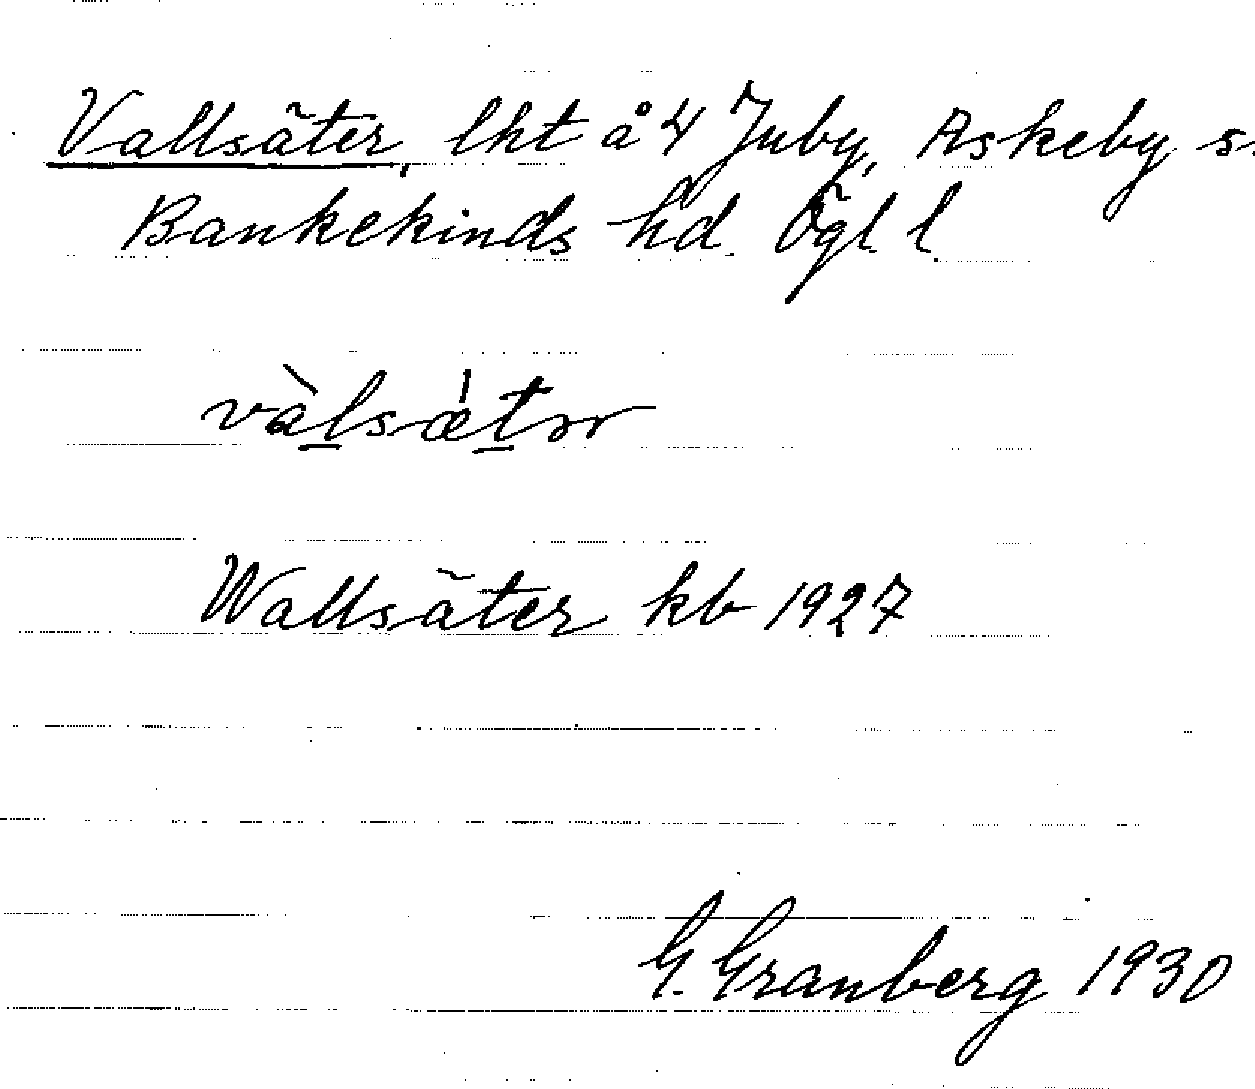 Vallsäter, lht å 4 Juby, Askeby s.
Bankekinds hd. Ögl l.
vàlsæ̀tər
Wallsäter kb 1927
G. Granberg 1930